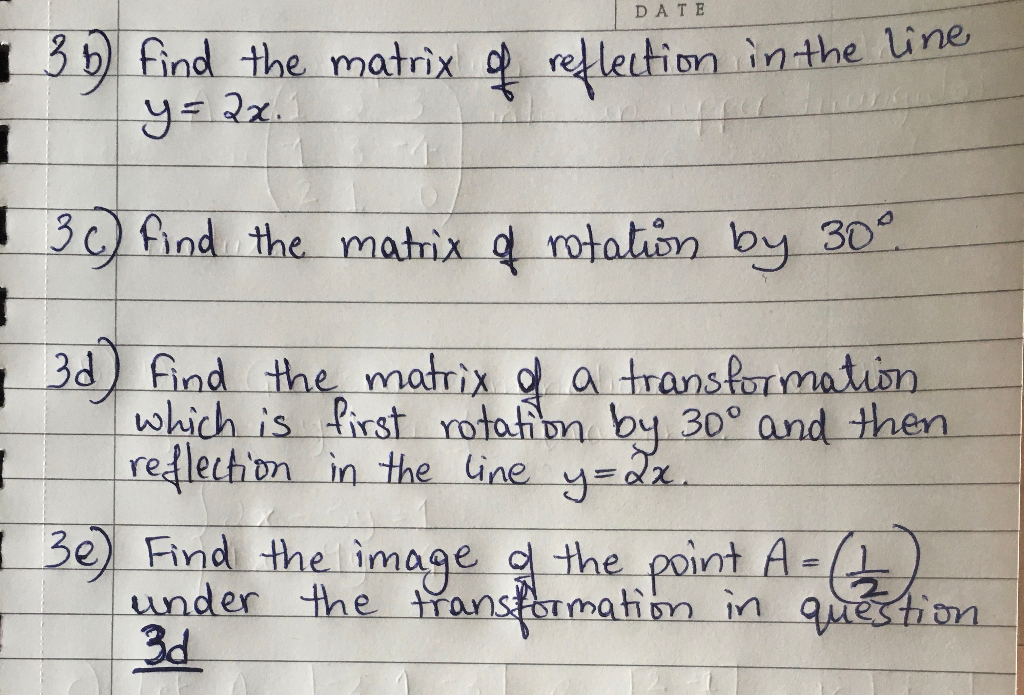 DATE
3b) find the matrix of reflection in the line
y = 2x.
3c) find the matrix of rotation by 30°.
3d) Find the matrix of a transformation
which is first rotation by 30° and then
reflection in the line y=2x.
3e) Find the image of the point A = (1/2)
under the transformation in question
3d